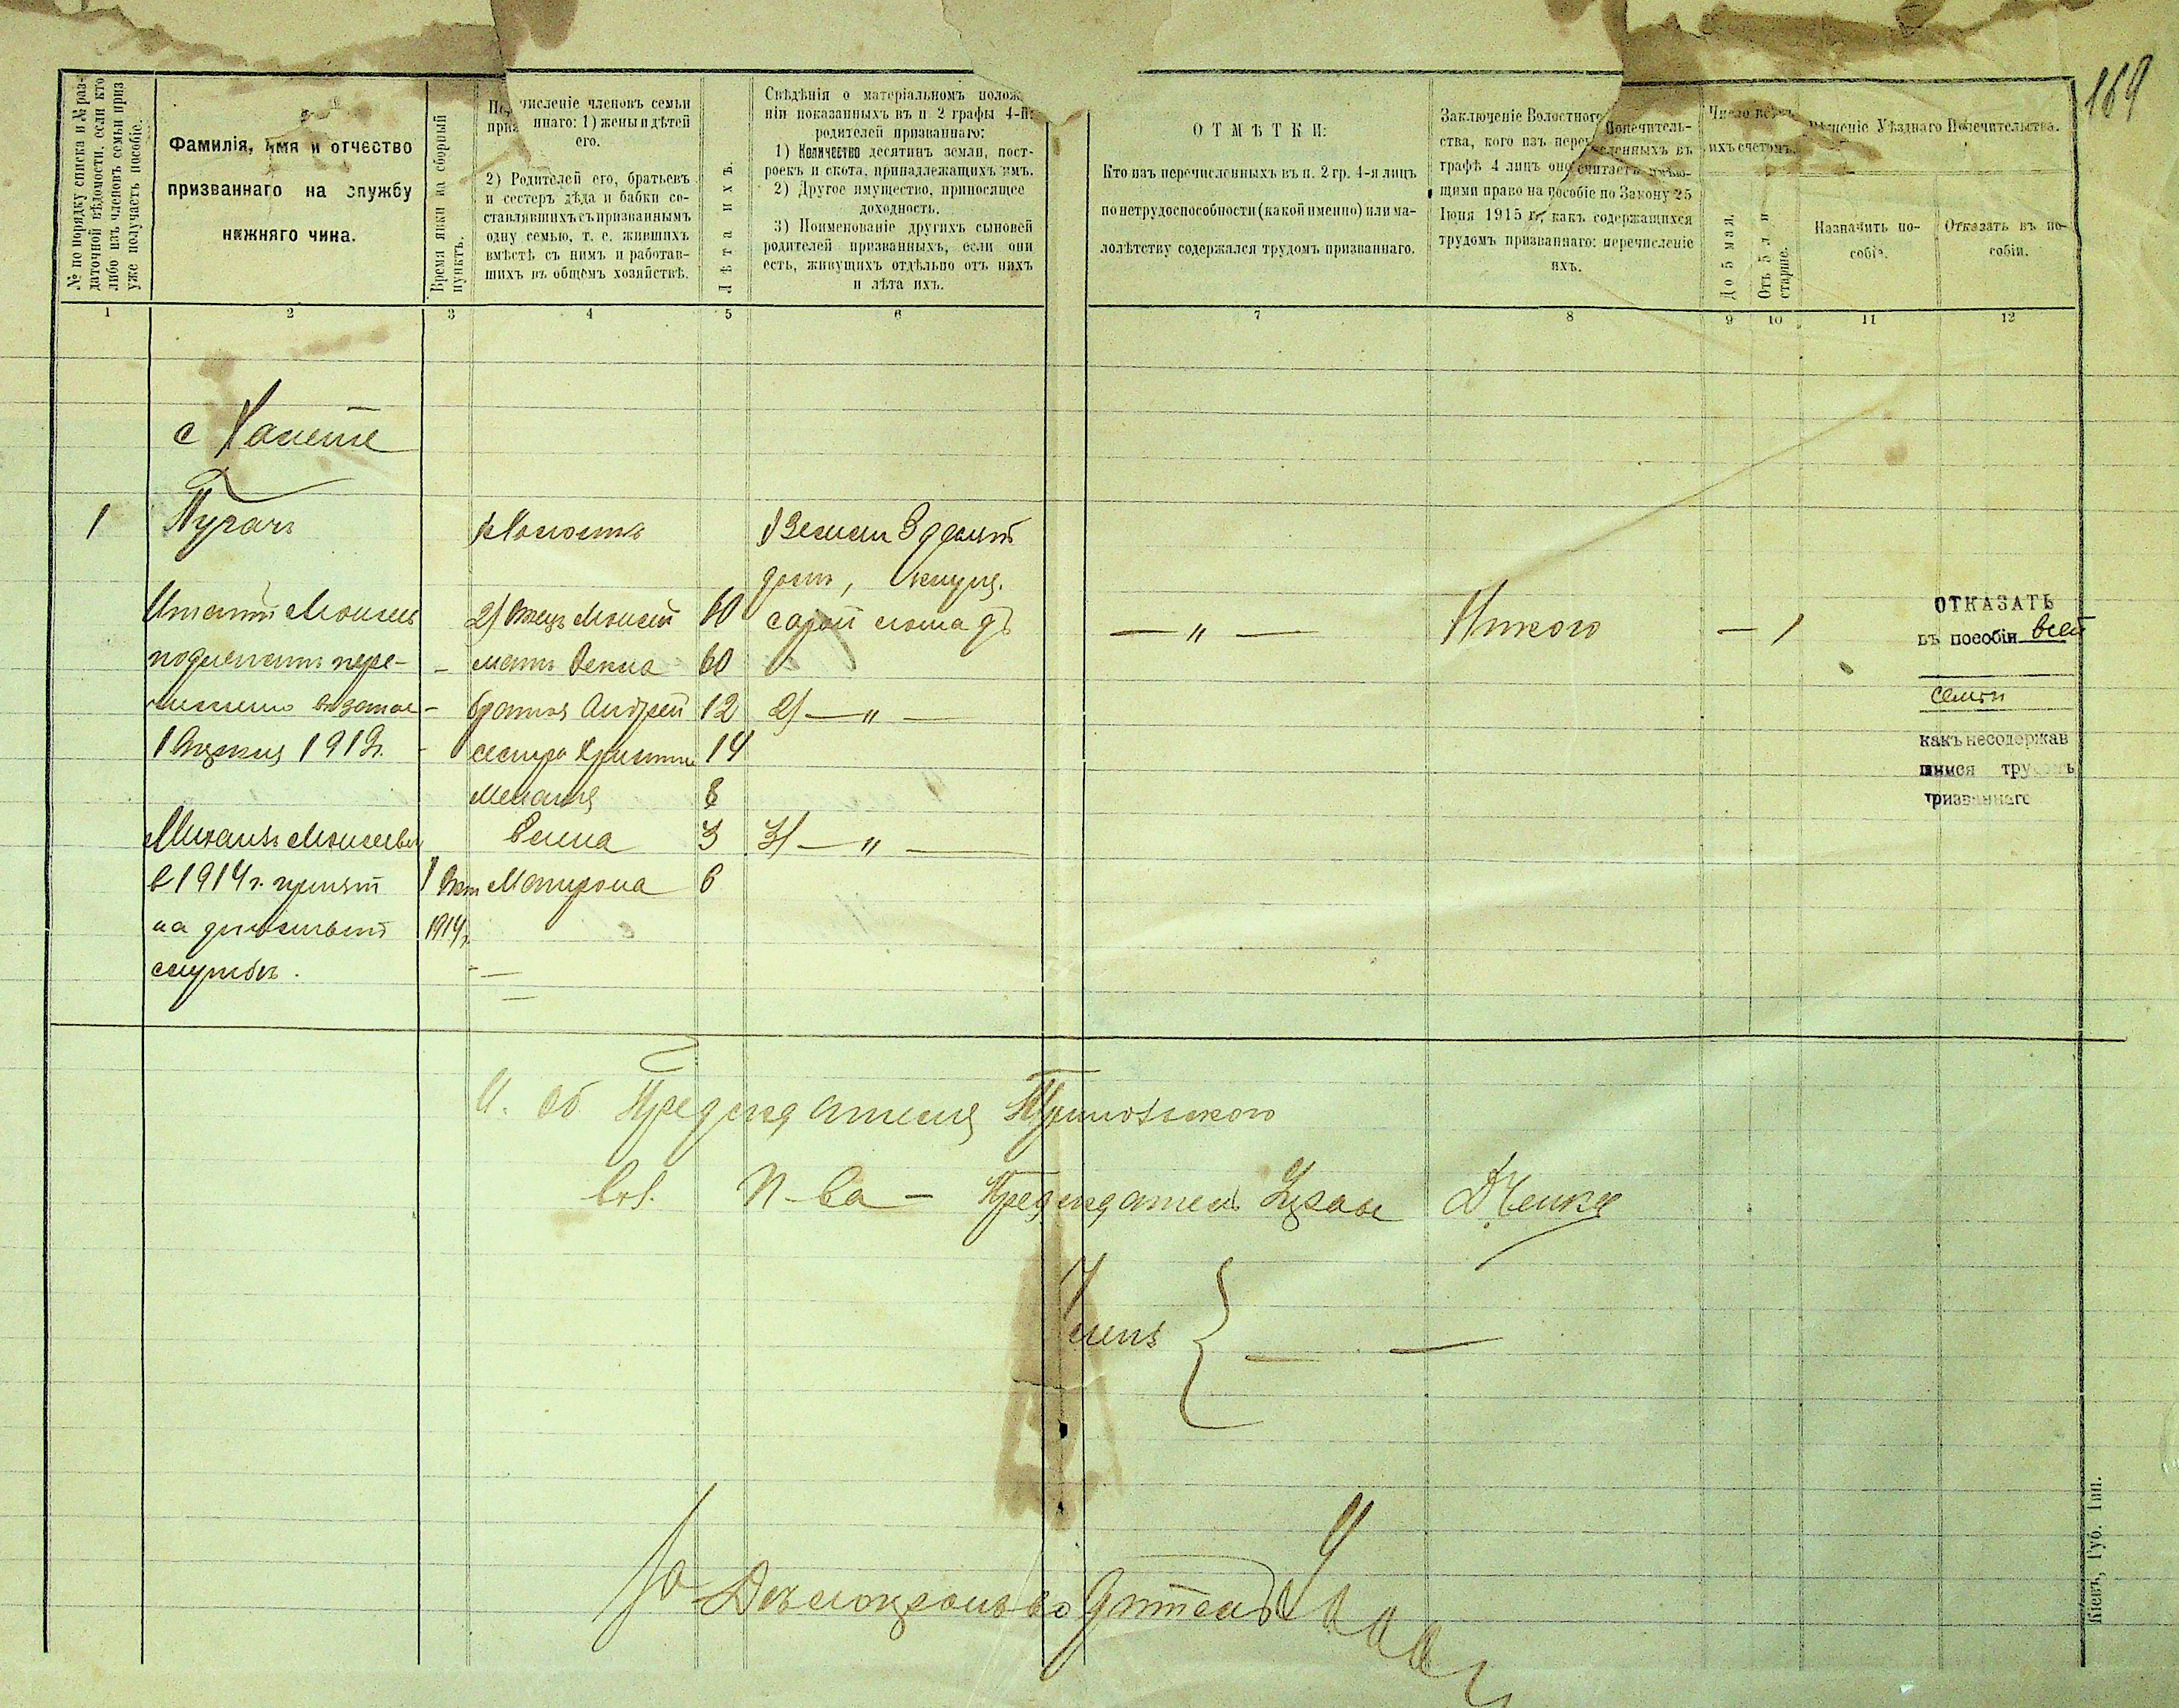 169
№ по порядку списка и № раз-
даточной вѣдомости, если кто
либо изъ членовъ семьи приз
уже получаетъ пособіе.
Фамилія, имя и отчество
призваннаго на службу
нижняго чина.
Время явки на сборный
пунктъ.
численіе членовъ семьи
ннаго: 1) жены и дѣтей
его.
2) Родителей его, братьевъ
и сестеръ дѣда и бабки со-
ставлявшихъ съ призваннымъ
одну семью, т. е. жившихъ
вмѣстѣ съ нимъ и работав-
шихъ въ общемъ хозяйствѣ.
Лѣта ихъ.
Свѣдѣнія о матеріальномъ полож
ніи показанныхъ въ п 2 графы 4-й:
родителей призваннаго:
1) Количество десятинъ земли, пост-
роекъ и скота, принадлежащихъ имъ.
2) Другое имущество, приносящее
доходность.
3) Поименованіе другихъ сыновей
родителей призванныхъ, если они
есть, живущихъ отдѣльно отъ нихъ
и лѣта ихъ.
ОТМѢТКИ:
Кто изъ перечисленныхъ въ п. 2 гр. 4-я лицъ
по нетрудоспособности (какой именно) или ма-
лолѣтству содержался трудомъ призваннаго.
Заключеніе Волостного Попечитель-
ства, кого изъ перечисленныхъ въ
графѣ 4 лицъ оно считаетъ имѣю-
щими право на пособіе по Закону 25
Іюня 1915 г., какъ содержащихся
трудомъ призваннаго: перечисленіе
ихъ.
Число всѣхъ
ихъ счетомъ.
До 5 мая.
Отъ 5 л. и
старше.
Рѣшеніе Уѣзднаго Попечительства.
Назначить по-
собіе.
Отказать въ по-
собіи.
1 2 3 4 5 6 7 8 9 10 11 12
с
1 Пугачъ 1) Холостъ 1) Земли 3 десят
домъ,
Моисеев 2) Отецъ Моисей 60 сарай лошадь — " — Никого — 1 ОТКАЗАТЬ
въ пособіи всей
пере- - мать Текла 60
семьи
- братья Андрей 12 2) — " —
1912г. - сестра Христина 14 какъ несодержав
шимся трудомъ
Меланія 8 призваннаго
Михаилъ Моисеевъ 3 3) — " —
в 1914 г. принят 1 Окт Матрона 6
на действит 1914 г.
службу. - —
И. об. Предсѣдателя
Вол. П-ва — Предсѣдатель
Члены { — —
Дѣлопроизводитель
Кіевъ, Губ. Тип.